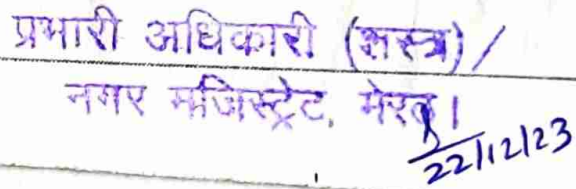 प्रभारी अधिकारी (शस्त्र) /
नगर मजिस्ट्रेट, मेरठ।
22/12/23